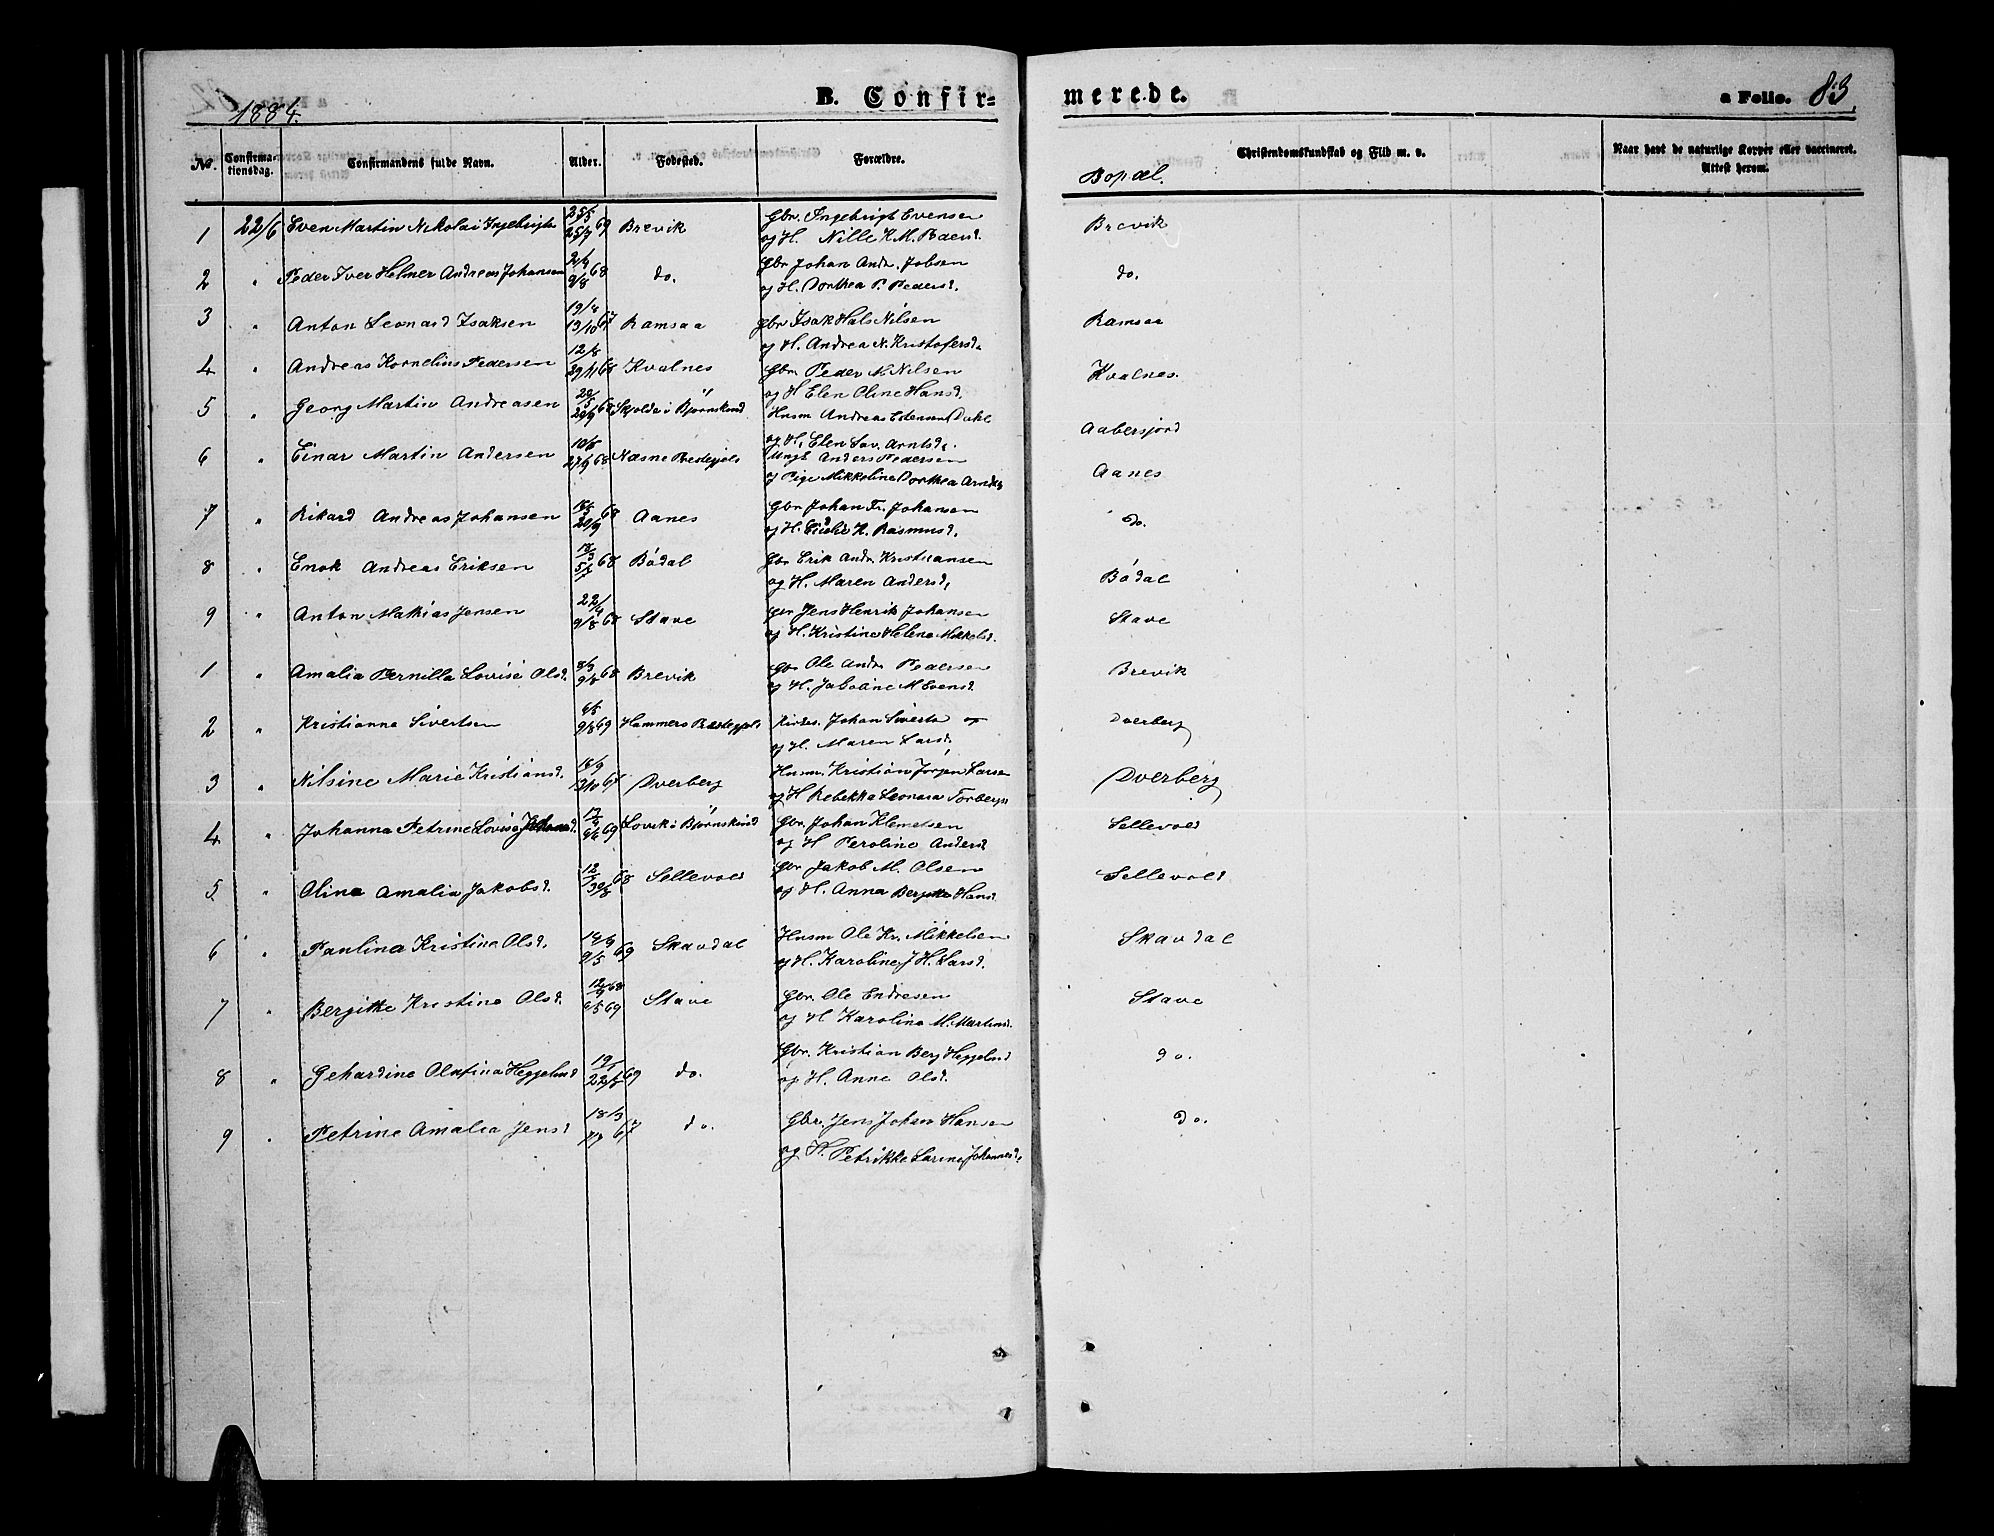 1884.
B. Confir-
merede.
a Folio. 83.
No. Confirmationsdag. Confirmandens fulde Navn. Alder. Fødested. Forældre. Bopæl. Christendomskundskab og Flid m. v. Naar havt de naturlige Kopper eller vaccineret. Attest herom.
1 22/6 Even Martin Nikolai Ingebrigts 25/5 25/7 69 Brevik Gbr. Ingebrigt Evensen Brevik
og H. Nille K. M.
2 " Peder Iver Helmer Andreas Johansen 2/4 9/8 68 do. Gbr Johan Andr. Jobsen do.
og H. Dorthea P. Pedersd.
3 " Anton Leonard Isaksen 19/4 13/10 67 Ramsaa Gbr Isak Hals Nilsen Ramsaa
og H. Andrea N. Kristofersd.
4 " Andreas Kornelius Pedersen 12/8 29/11 68 Kvalnes Gbr Peder N. Nilsen Kvalnes.
og H Elen Oline Hansd.
5 " Georg Martin Andreasen 20/9 68 Skjolde i Bjørnskind Husm Andreas Aabersjord
og H. Elen Lov. Arntsd.
6 " Einar Martin Andersen 10/8 27/9 68 Næsne Præstegjeld Ungk Anders Pedersen Aanes
og Pige Mikkeline Dorthea
7 " Rikard Andreas Johansen 20/9 68 Aanes Gbr Johan Fr. Johansen do.
og H. K. Rasmusd.
8 " Enok Andreas Eriksen 5/7 68 Bødal Gbr Erik Andr. Kristiansen Bødal
og H. Maren Andersd.
9 " Anton Mathias Jensen 22/4 9/8 68 Stave Gbr Jens Henrik Johansen Stave
og H. Kristine Helene Mikkelsd.
1 " Amalia Pernilla Lovise Olsd. 8/3 9/8 68 Brevik Gbr Ole Andr Pedersen Brevik
og H. Jakobine M Evensd.
2 " Kristianna Sivertsen 9/8 69 Hammers Præstegjeld Johan Siverts Dverberg
og H. Maren Larsd.
3 " Nilsine Marie Kristiansd. 18/9 13/10 67 Dverberg Husm. Kristian Jørgen Larsen Dverberg
og H Rebekka Leonara Torbergs
4 " Johanna Petrine Lovise Johansd. 69 Lovik i Bjørnskind Gbr. Johan Klemetsen Sellevold
og H Peroline Andersd.
5 " Olina Amalia Jakobsd. 68 Sellevold Gbr. Jakob M. Olsen Sellevold
og H. Anna Bergitte Hansd.
6 " Paulina Kristina Olsd. 14/4 9/5 69 Skavdal Husm Ole Kr. Mikkelsen Skavdal
og H. Karoline J. H. Larsd.
7 " Bergitte Kristine Olsd. 68 6/5 69 Stave Gbr. Ole Endresen Stave
og H Karolina M. Martinsd.
8 " Gehardine Olufina Heggelund 19/1 22/8 69 do. Gbr. Kristian Berg Heggelund do.
og H. Anne Olsd.
9 " Petrine Amalia Jensd 18/3 67 do. Gbr. Jens Johan Hansen do.
og H. Petrikke Larine Johannesd.